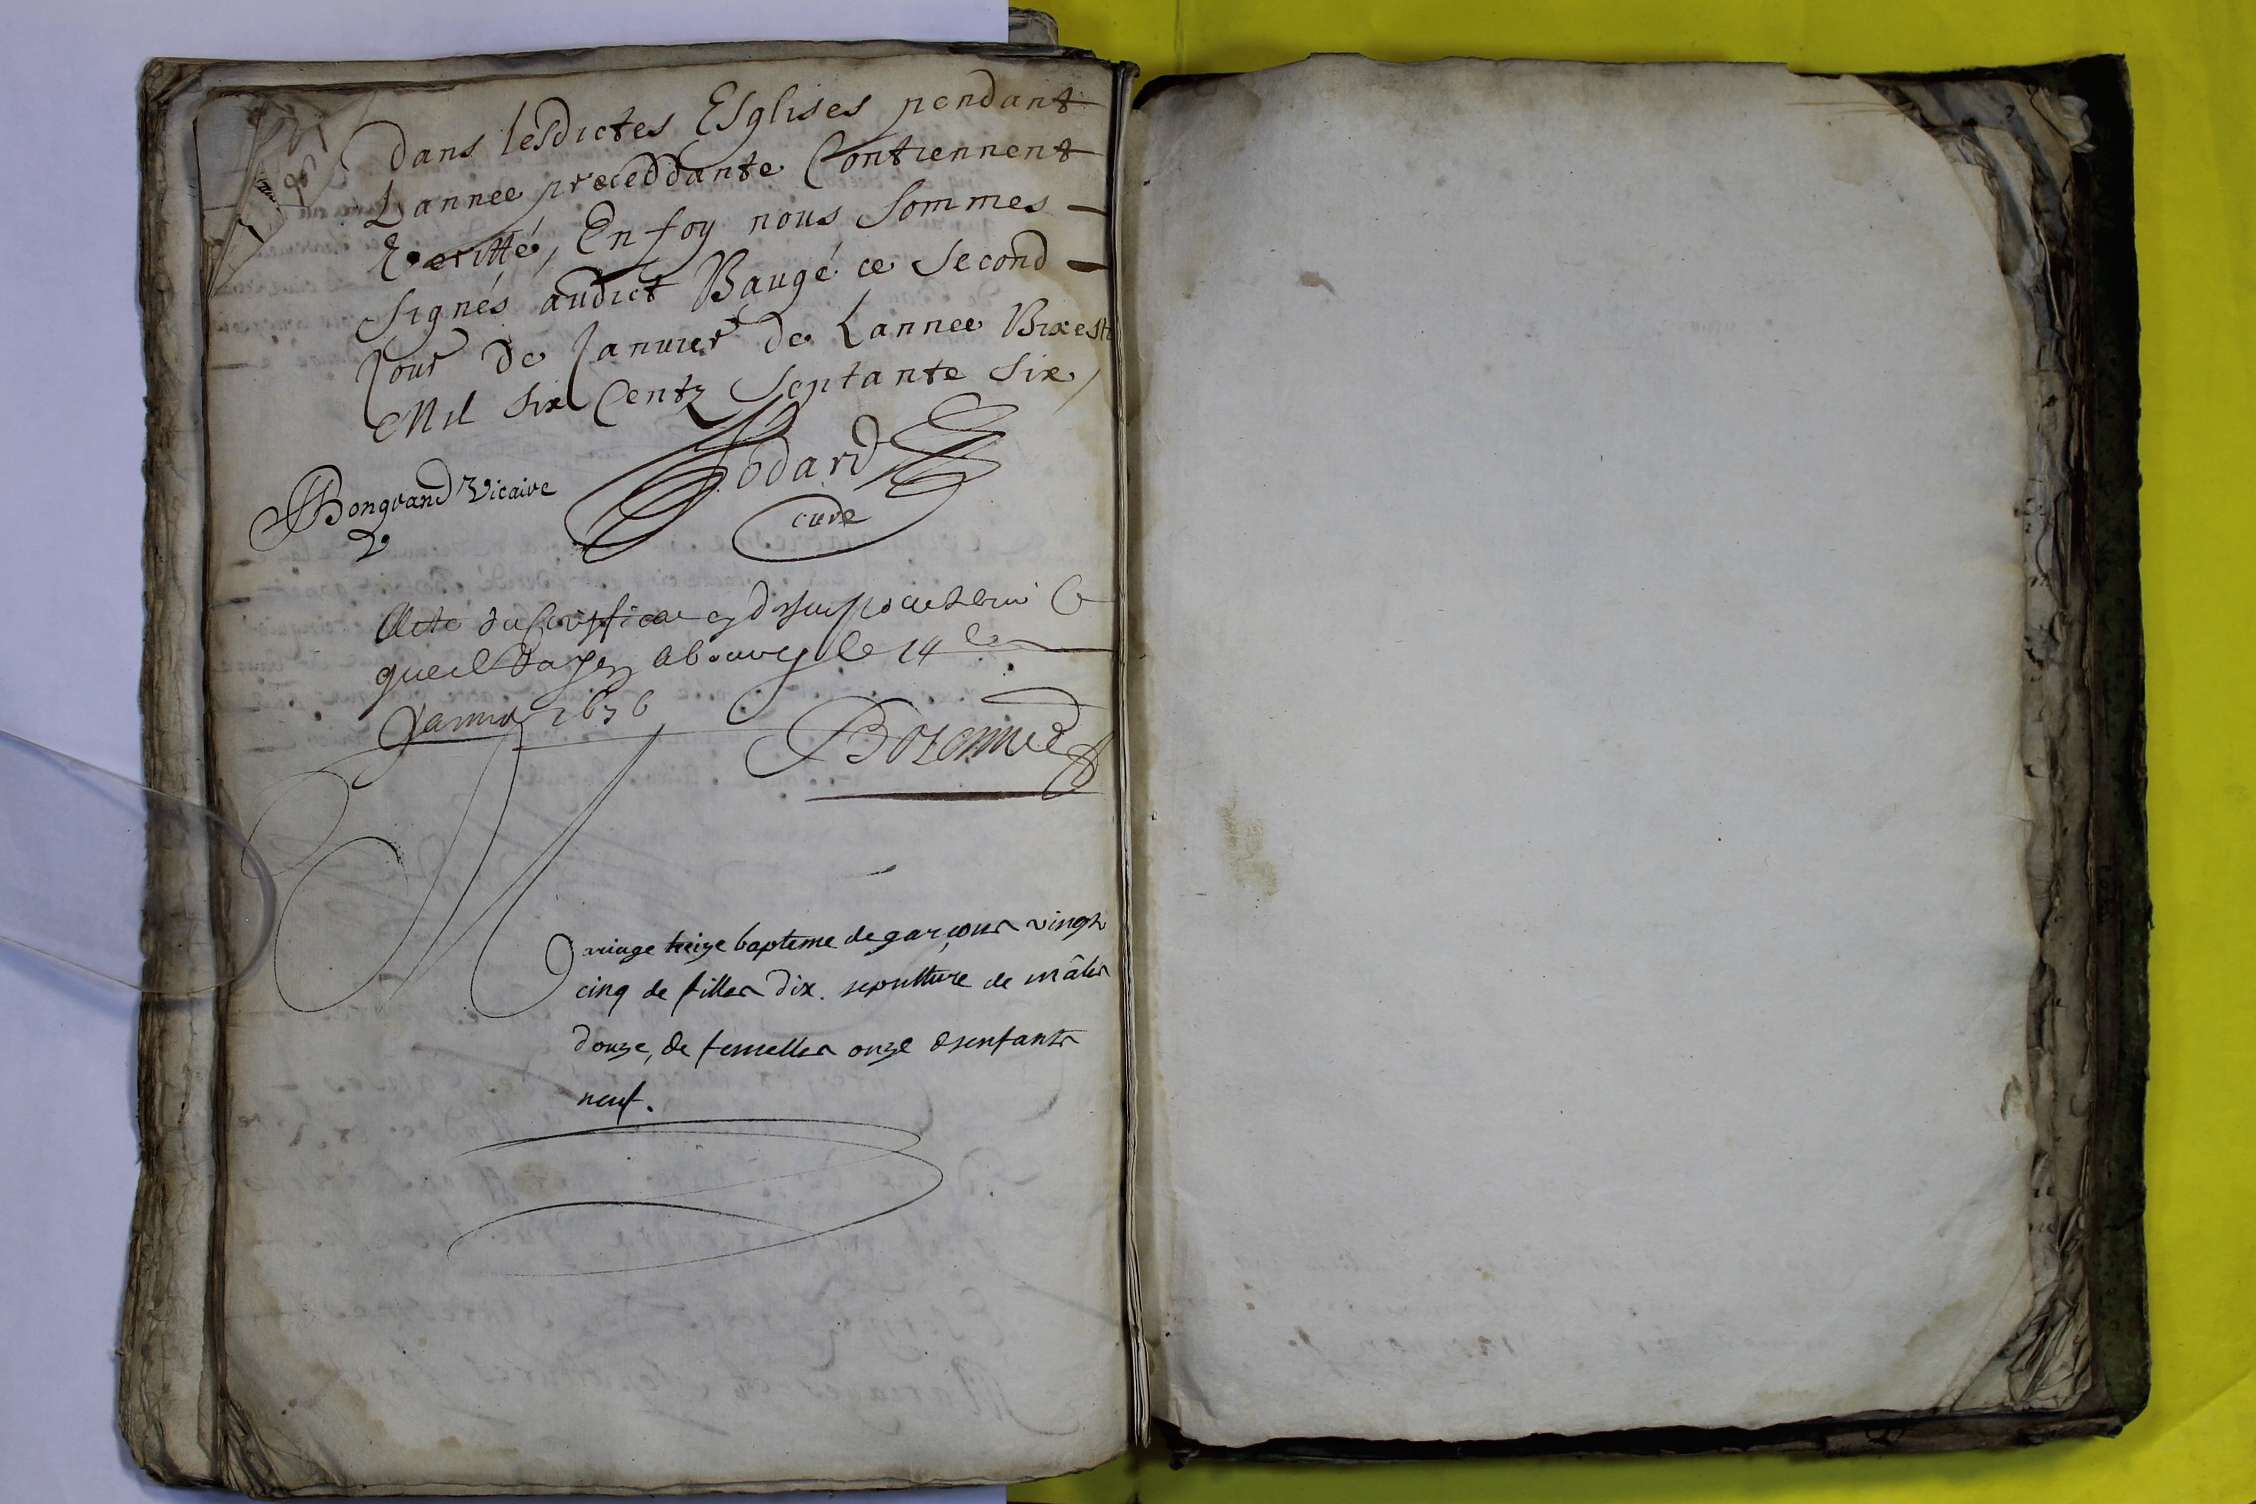 dans lesdictes Esglises pendant
Lannee preceddante Contiennent
Veritté, En foy nous sommes
signés audict Baugé ce second
Jour de Janvier de Lannee Bixest
Mil six Centz Septante six,
Bongrand Vicaire
Jodard
curé
Acte du
le 14
Janvier 1676
Mariage treize bapteme de garçons vingt
cinq de filles dix. sepulture de mâles
douze, de femelles onze d'enfants
neuf.